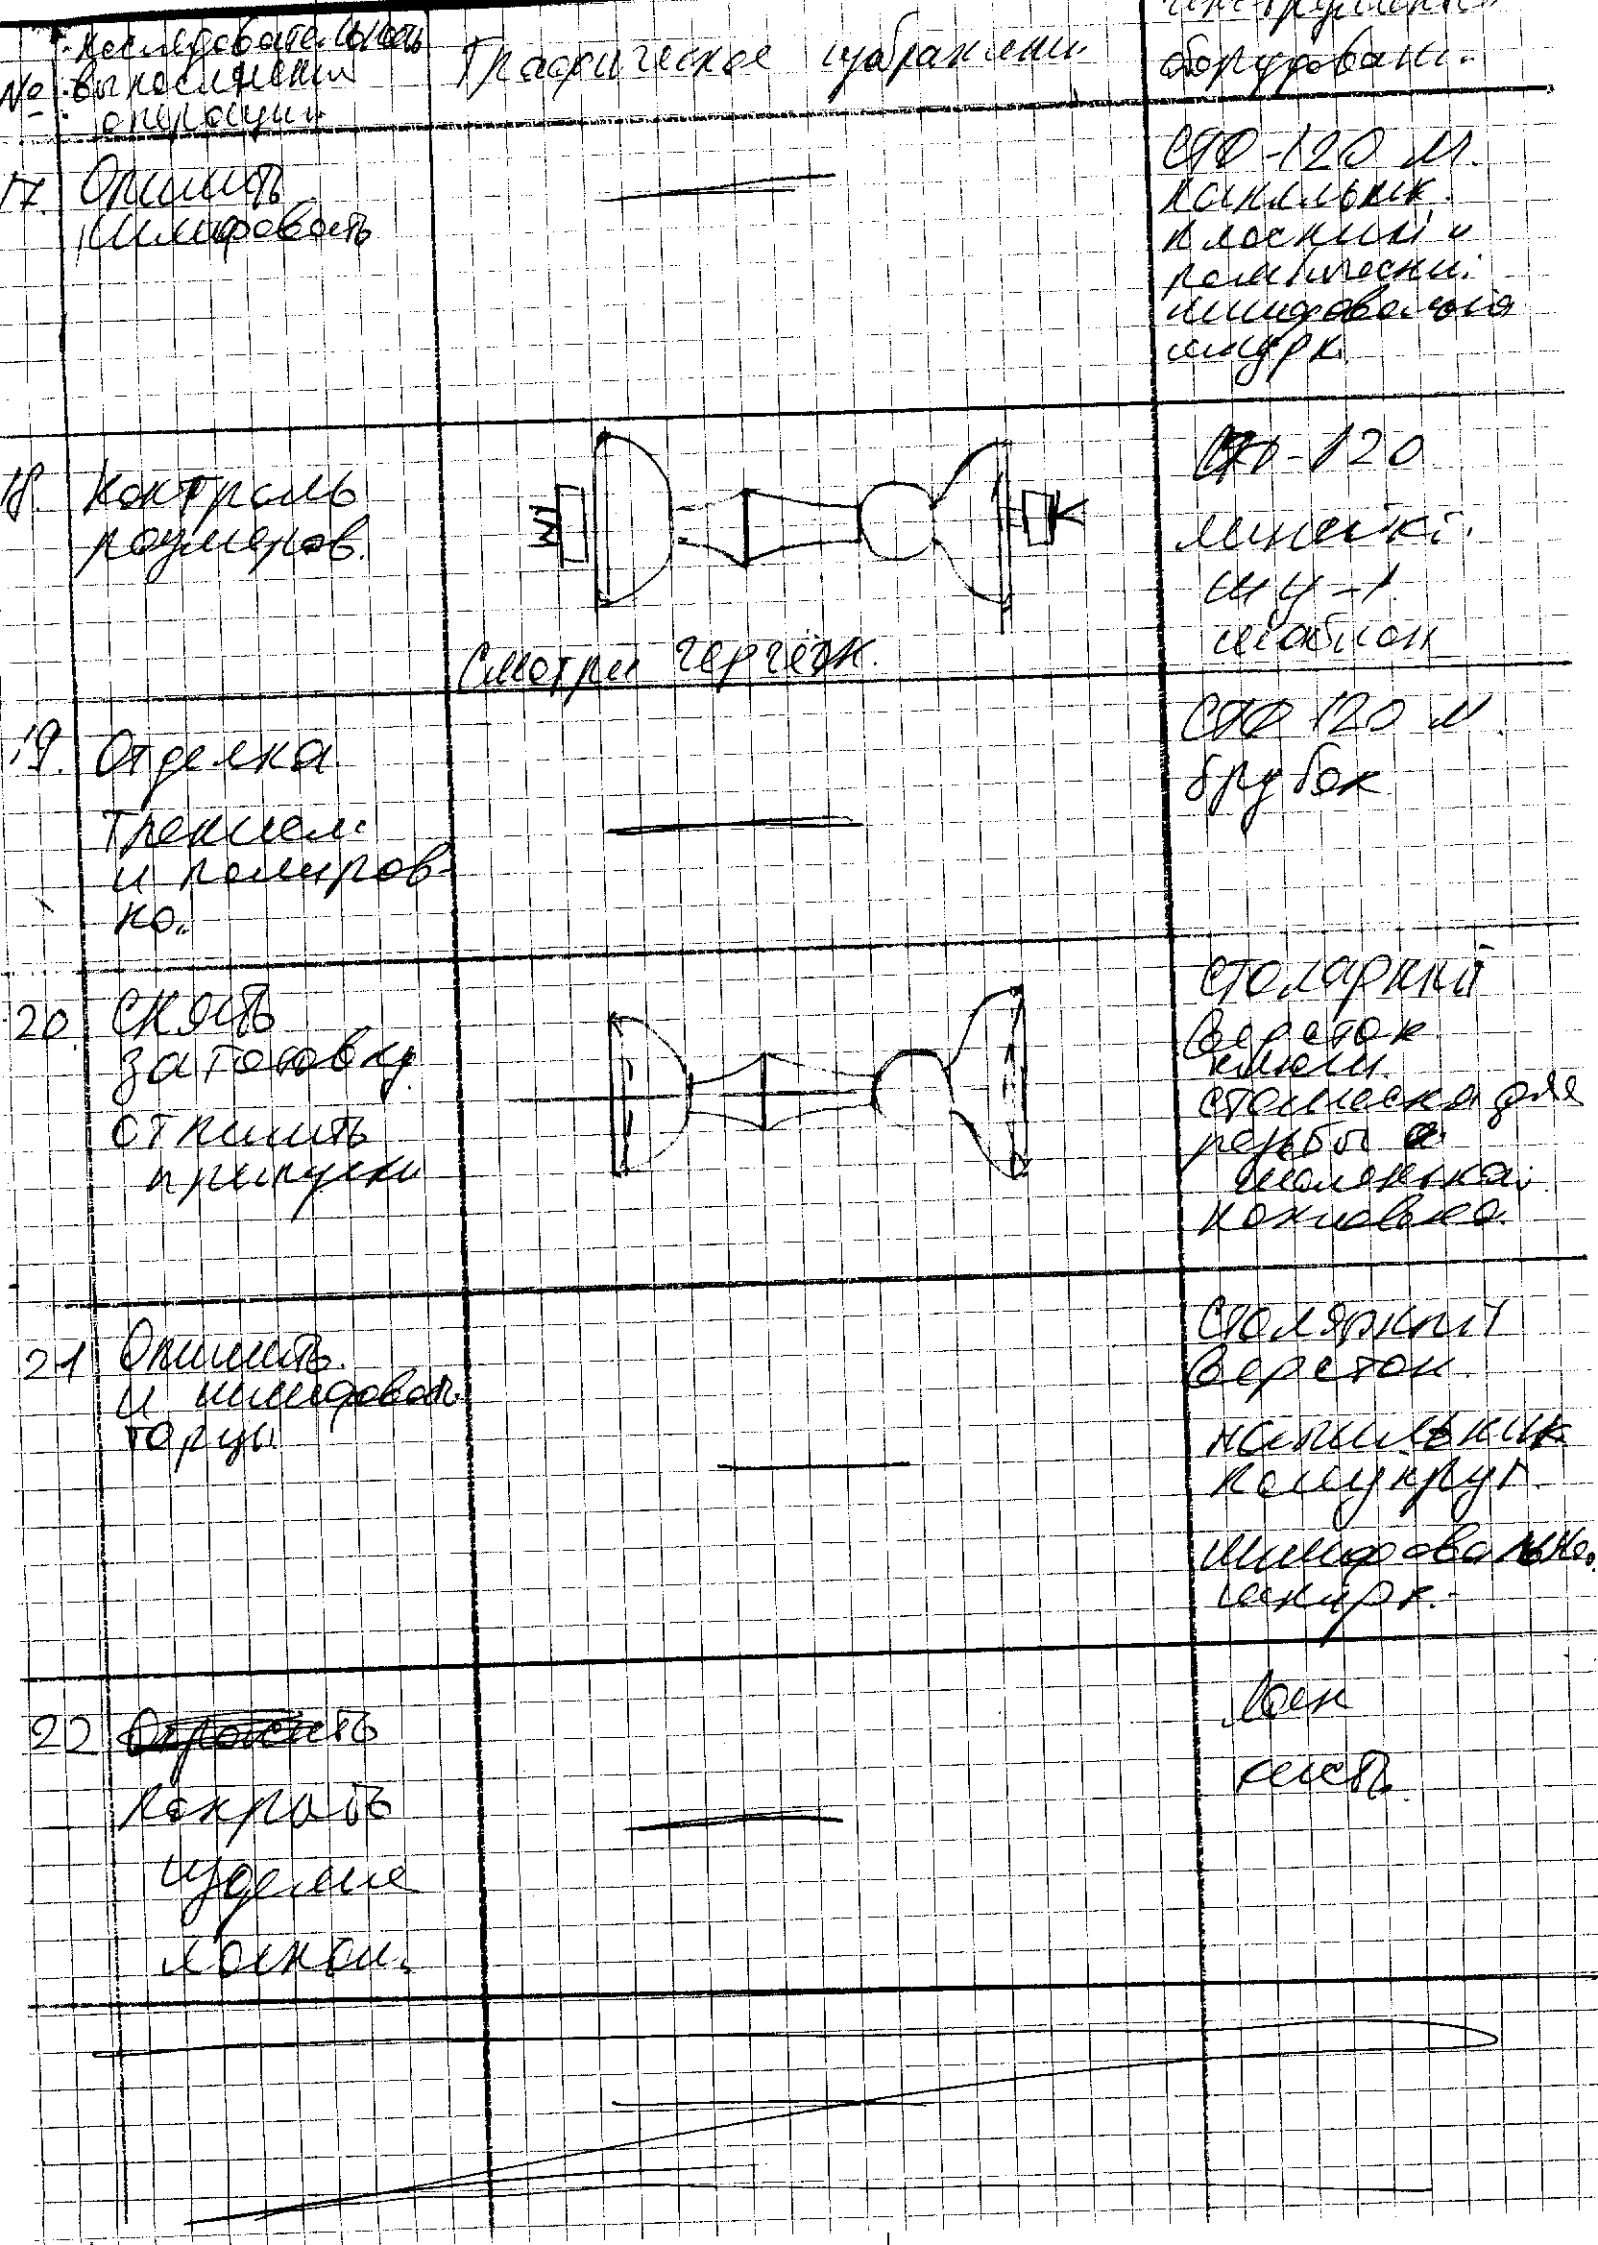 последовательность
№ выполнения
операции
Графическое изображени
инструменты
оборудован.
17. Опилить
шлифовать
СТД-120 М.
напильник.
плоский и
шлифовальная
шкурк.
18. Контроль
размеров.
Смотри чертёж.
СТД-120
линейк.
ШЦ-1
шаблон
19. Отделка
трением
и полиров-
ка.
СТД 120 М.
брусок
20. Снять
заготовку
отпилить
припуски
столярный
верстак
клещи.
для
резьбы
ножовка.
21 Опилить.
и шлифовать
торцы
столярный
верстак.
напильник
полукруг.
шлифовальна.
шкурк.
22
покрыть
изделие
лаком.
Лак
кисть.